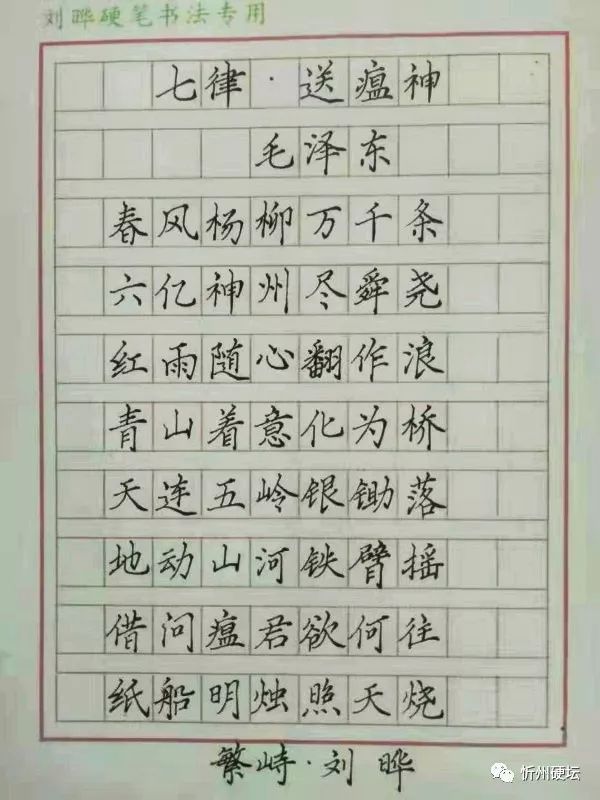 刘晔硬笔书法专用
七律·送瘟神
毛泽东
春风杨柳万千条
六亿神州尽舜尧
红雨随心翻作浪
青山着意化为桥
天连五岭银锄落
地动山河铁臂摇
借问瘟君欲何往
纸船明烛照天烧
繁峙·刘晔
忻州硬坛